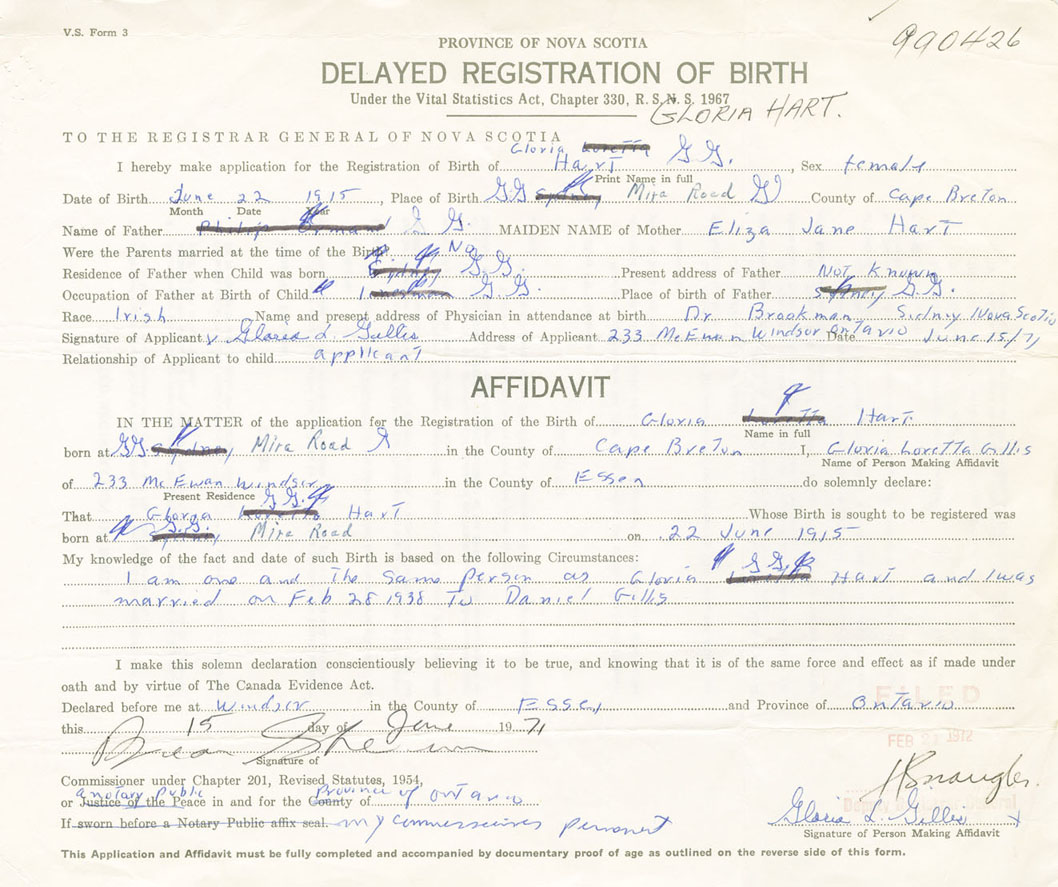 V.S. Form 3
990426
PROVINCE OF NOVA SCOTIA
DELAYED REGISTRATION OF BIRTH
Under the Vital Statistics Act, Chapter 330, R.S.N.S. 1967
GLORIA HART.
TO THE REGISTRAR GENERAL OF NOVA SCOTIA
I hereby make application for the Registration of Birth of Gloria Loretta Hart G.G., Sex female
Print Name in full
Date of Birth June 22 1915, Place of Birth GG Sydney, Mira Road G County of Cape Breton
Month Date Year
Name of Father Philip G. MAIDEN NAME of Mother Eliza Jane Hart
Were the Parents married at the time of the Birth No
Residence of Father when Child was born Sydney G.G. Present address of Father Not Known
Occupation of Father at Birth of Child G.G. Place of birth of Father Sydney G.G.
Race Irish Name and present address of Physician in attendance at birth Dr Brookman Sidney Nova Scotia
Signature of Applicant Gloria L. Gillis Address of Applicant 233 McEwan Windsor Ontario Date June 15/71
Relationship of Applicant to child applicant
AFFIDAVIT
IN THE MATTER of the application for the Registration of the Birth of Gloria Loretta Hart
Name in full
born at GG. Sydney, Mira Road G in the County of Cape Breton I, Gloria Loretta Gillis
Name of Person Making Affidavit
of 233 McEwan Windsor in the County of Essex do solemnly declare:
Present Residence G.G.
That Gloria Loretta Hart Whose Birth is sought to be registered was
born at G.G. Sydney, Mira Road on 22 June 1915
My knowledge of the fact and date of such Birth is based on the following Circumstances:
I am one and the same person as Gloria GG Hart and I was
married on Feb 28 1938 To Daniel Gillis
I make this solemn declaration conscientiously believing it to be true, and knowing that it is of the same force and effect as if made under
oath and by virtue of The Canada Evidence Act.
FILED
Declared before me at Windsor in the County of Essex and Province of Ontario
this 15 day of June 1971
FEB 21 1972
Signature of
Commissioner under Chapter 201, Revised Statutes, 1954,
a notary public
or Justice of the Peace in and for the County of Province of Ontario
If sworn before a Notary Public affix seal. my commission is permanent
Gloria L. Gillis
Signature of Person Making Affidavit
This Application and Affidavit must be fully completed and accompanied by documentary proof of age as outlined on the reverse side of this form.